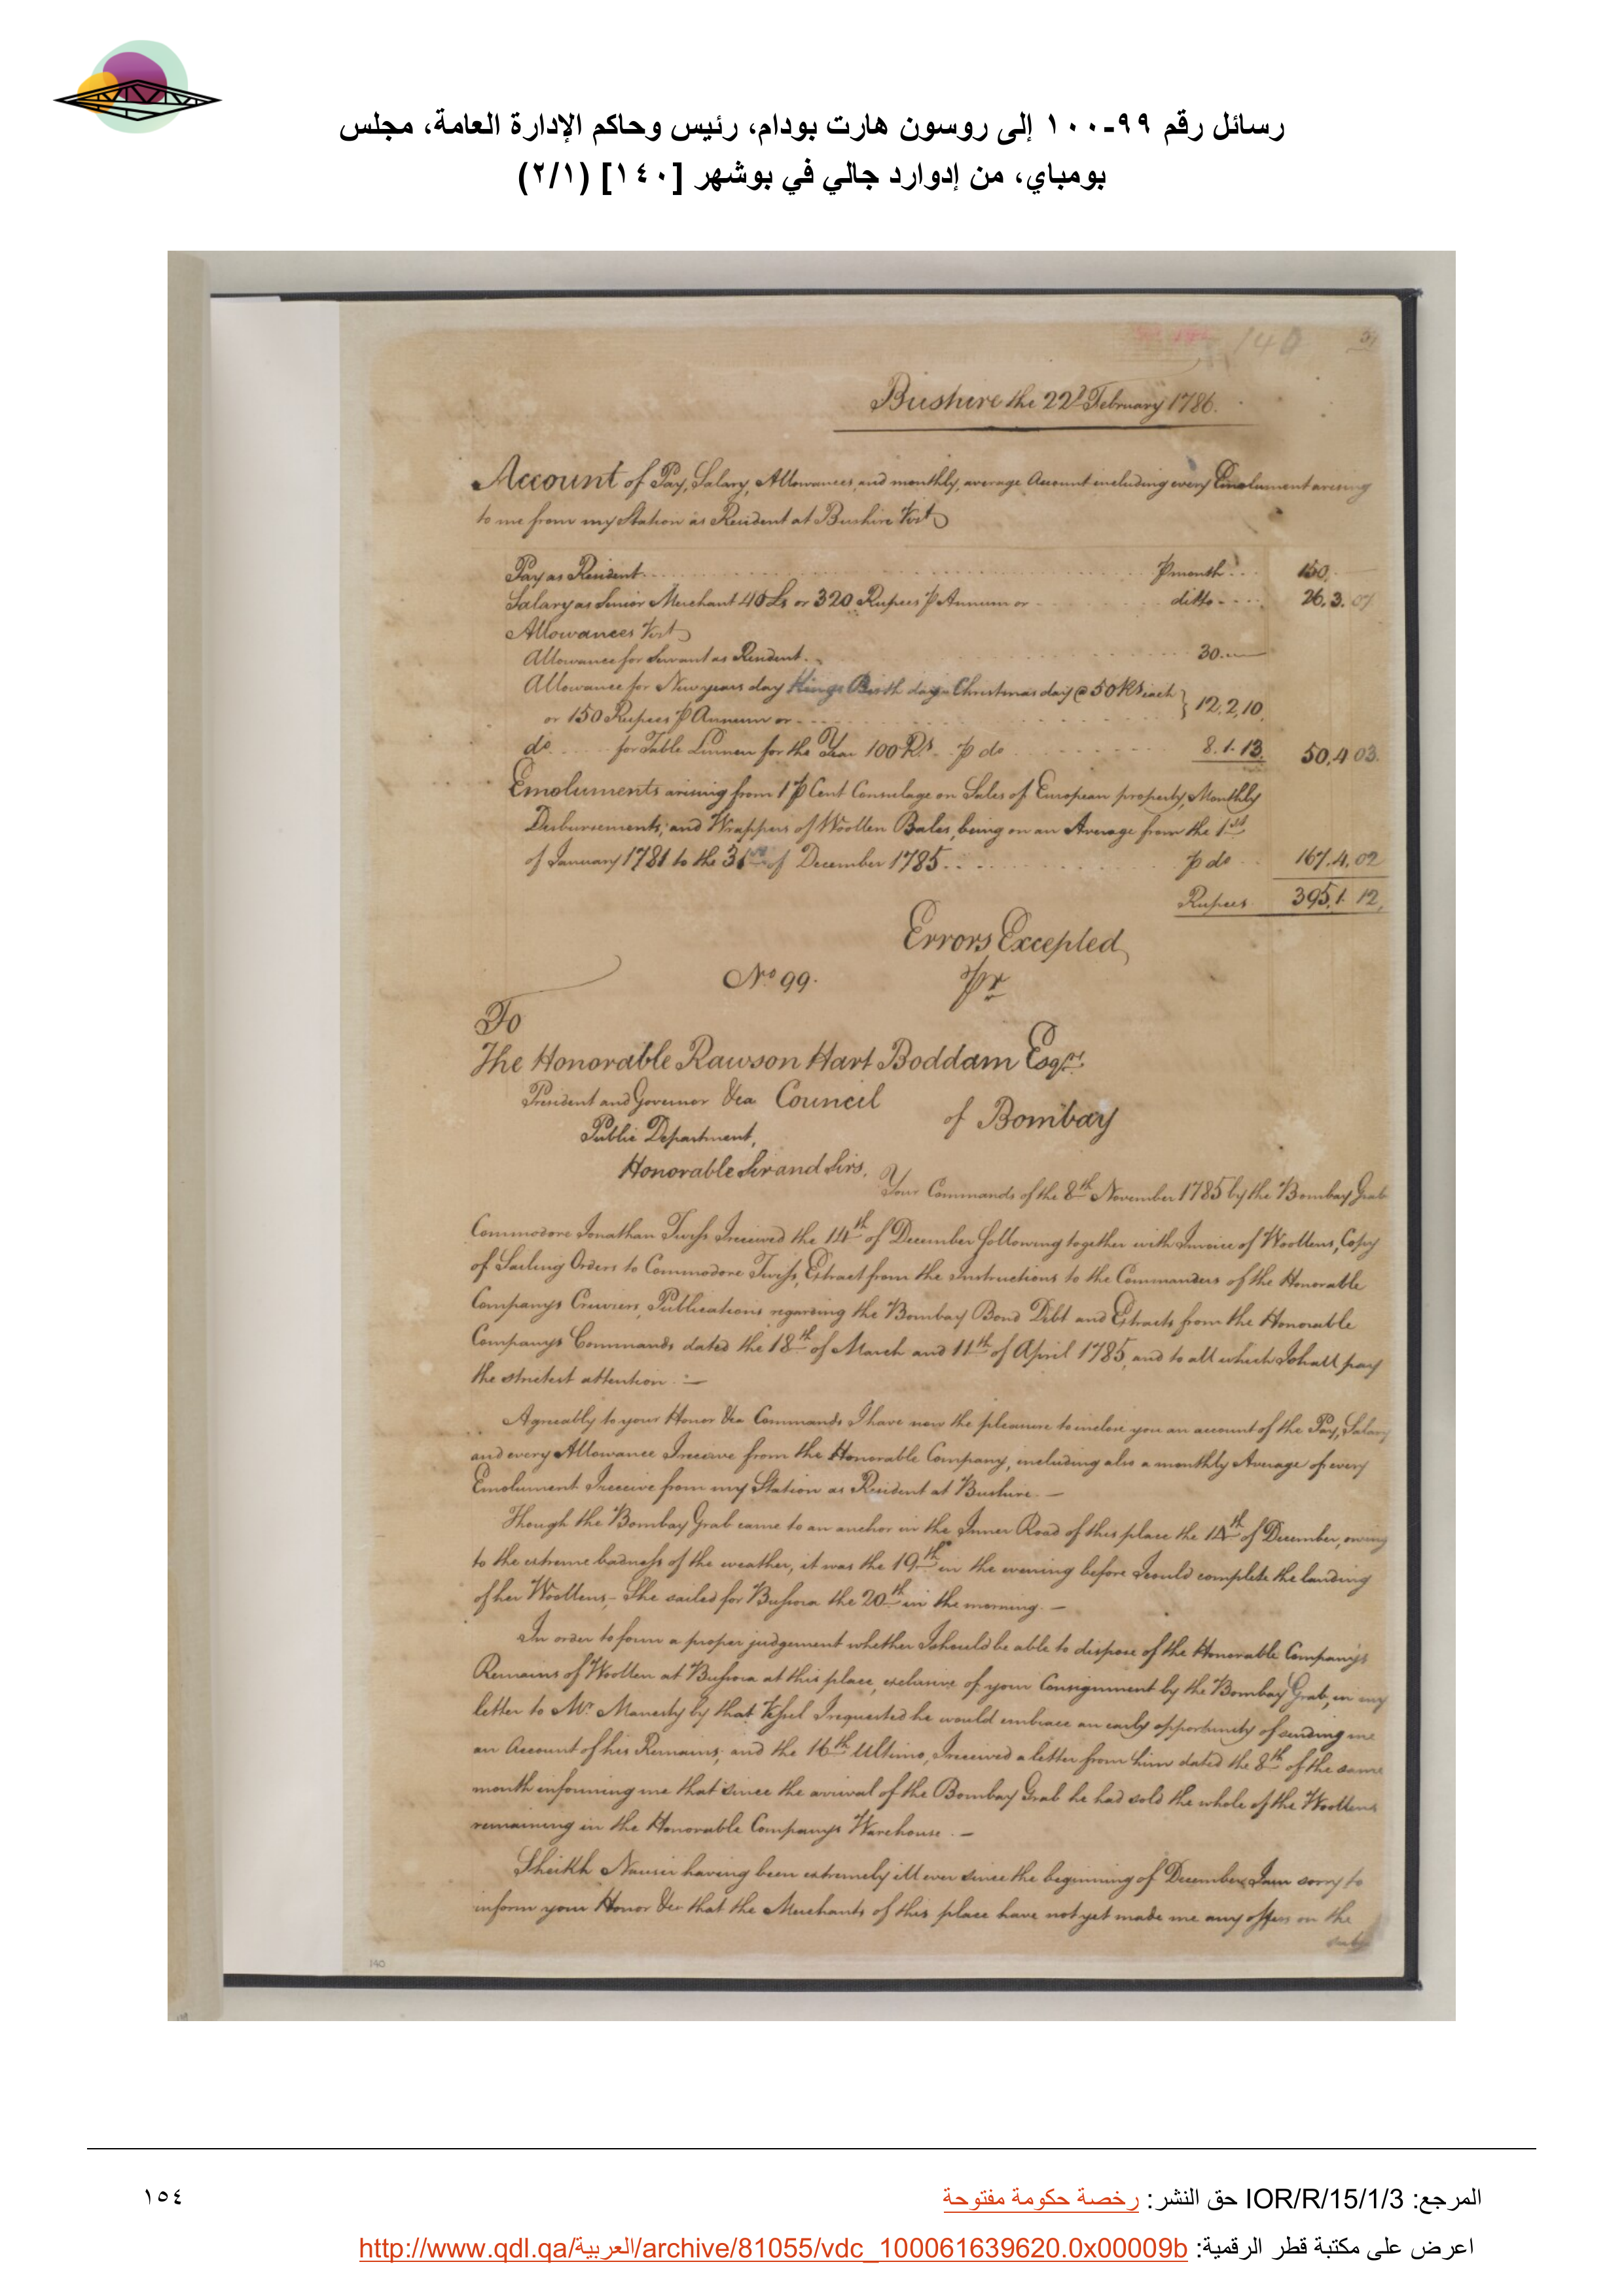 رسائل رقم ٩٩-١٠٠ إلى روسون هارت بودام، رئيس وحاكم الإدارة العامة، مجلس
بومباي، من إدوارد جالي في بوشهر [١٤٠] (٢/١)
140
Bushire the 22d February 1786.
Account of Pay, Salary, Allowances, and monthly, average Account including every Emolument arising
to me from my Station as Resident at Bushire Vizt
Pay as Resident . . . p month . . . 150.
Salary as Senior Merchant 40 Ls or 320 Rupees p Annum or . . . ditto . . . 26.3.07
Allowances Vizt
Allowance for Servant as Resident . . . 30.—
Allowance for New years day Kings Birth day & Christmas day @ 50 Rs each } 12.2.10.
or 150 Rupees p Annum or . . .
do . . . for Table Linnen for the Year 100 Rs. p do . . . 8.1.13. 50.4.03.
Emoluments arising from 1 p Cent Consulage on Sales of European property, Monthly
Disbursements, and Wrappers of Woollen Bales, being on an Average from the 1st
of January 1781 to the 31st of December 1785 . . . p do . . . 167.4.02
Rupees 395.1.12.
Errors Excepted
No 99. Pr
To
The Honorable Rawson Hart Boddam Esqre
President and Governor &ca Council
of Bombay
Public Department,
Honorable Sir and Sirs.
Your Commands of the 8th November 1785 by the Bombay Grab
Commodore Jonathan Twiss I received the 14th of December following together with Invoice of Woollens, Copy
of Sailing Orders to Commodore Twiss, Extract from the Instructions to the Commanders of the Honorable
Companys Cruizers, Publications regarding the Bombay Bond Debt and Extracts from the Honorable
Companys Commands dated the 18th of March and 11th of April 1785, and to all which I shall pay
the strictest attention. —
Agreeably to your Honor &ca Commands I have now the pleasure to inclose you an account of the Pay, Salary
and every Allowance I receive from the Honorable Company, including also a monthly Average of every
Emolument I receive from my Station as Resident at Bushire. —
Though the Bombay Grab came to an anchor in the Inner Road of this place the 14th of December, owing
to the extreme badness of the weather, it was the 19th in the evening before I could complete the landing
of her Woollens,- She sailed for Bussora the 20th in the morning. —
In order to form a proper judgement whether I should be able to dispose of the Honorable Companys
Remains of Woollen at Bussora at this place, exclusive of your Consignment by the Bombay Grab, in my
letter to Mr. Manesty by that Vessel I requested he would embrace an early opportunity of sending me
an Account of his Remains; and the 16th Ultimo, I received a letter from him dated the 8th of the same
month informing me that since the arrival of the Bombay Grab he had sold the whole of the Woollens
remaining in the Honorable Companys Warehouse. —
Sheikh Nausir having been extremely ill ever since the beginning of December I am sorry to
inform your Honor &ca that the Merchants of this place have not yet made me any offers on the
140
المرجع: IOR/R/15/1/3 حق النشر: رخصة حكومة مفتوحة
١٥٤
اعرض على مكتبة قطر الرقمية: http://www.qdl.qa/العربية/archive/81055/vdc_100061639620.0x00009b